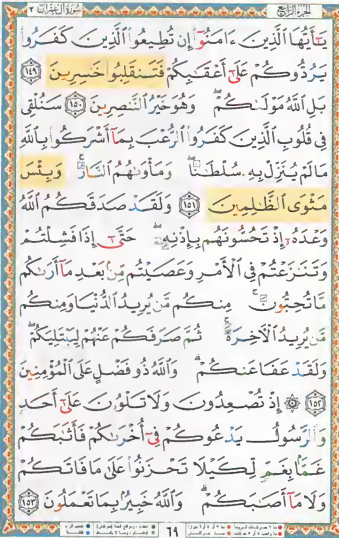 الجزء الرابع
سورة آل عمران ٣
يَٰٓأَيُّهَا ٱلَّذِينَ ءَامَنُوٓا۟ إِن تُطِيعُوا۟ ٱلَّذِينَ كَفَرُوا۟
يَرُدُّوكُمْ عَلَىٰٓ أَعْقَٰبِكُمْ فَتَنقَلِبُوا۟ خَٰسِرِينَ ١٤٩
بَلِ ٱللَّهُ مَوْلَىٰكُمْ ۖ وَهُوَ خَيْرُ ٱلنَّٰصِرِينَ ١٥٠ سَنُلْقِى
فِى قُلُوبِ ٱلَّذِينَ كَفَرُوا۟ ٱلرُّعْبَ بِمَآ أَشْرَكُوا۟ بِٱللَّهِ
مَا لَمْ يُنَزِّلْ بِهِۦ سُلْطَٰنًا ۖ وَمَأْوَىٰهُمُ ٱلنَّارُ ۚ وَبِئْسَ
مَثْوَى ٱلظَّٰلِمِينَ ١٥١ وَلَقَدْ صَدَقَكُمُ ٱللَّهُ
وَعْدَهُۥٓ إِذْ تَحُسُّونَهُم بِإِذْنِهِۦ ۖ حَتَّىٰٓ إِذَا فَشِلْتُمْ
وَتَنَٰزَعْتُمْ فِى ٱلْأَمْرِ وَعَصَيْتُم مِّنۢ بَعْدِ مَآ أَرَىٰكُم
مَّا تُحِبُّونَ ۚ مِنكُم مَّن يُرِيدُ ٱلدُّنْيَا وَمِنكُم
مَّن يُرِيدُ ٱلْءَاخِرَةَ ۚ ثُمَّ صَرَفَكُمْ عَنْهُمْ لِيَبْتَلِيَكُمْ ۖ
وَلَقَدْ عَفَا عَنكُمْ ۗ وَٱللَّهُ ذُو فَضْلٍ عَلَى ٱلْمُؤْمِنِينَ
١٥٢ ۞ إِذْ تُصْعِدُونَ وَلَا تَلْوُۥنَ عَلَىٰٓ أَحَدٍ
وَٱلرَّسُولُ يَدْعُوكُمْ فِىٓ أُخْرَىٰكُمْ فَأَثَٰبَكُمْ
غَمًّۢا بِغَمٍّ لِّكَيْلَا تَحْزَنُوا۟ عَلَىٰ مَا فَاتَكُمْ
وَلَا مَآ أَصَٰبَكُمْ ۗ وَٱللَّهُ خَبِيرٌۢ بِمَا تَعْمَلُونَ ١٥٣
٦٩